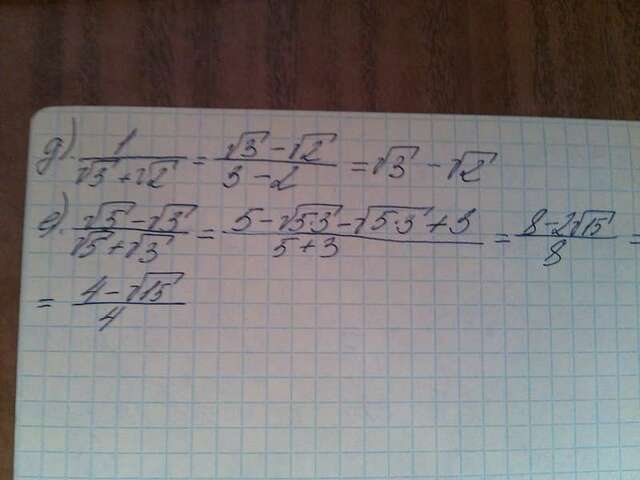 д) 1/(√3+√2) = (√3-√2)/(3-2) = √3-√2
е) (√5-√3)/(√5+√3) = (5-√5·3-√5·3+3)/(5+3) = (8-2√15)/8 =
= (4-√15)/4